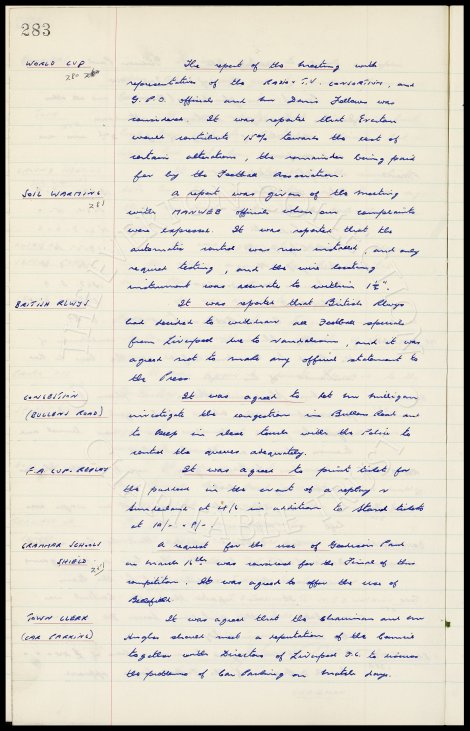 283
WORLD CUP
280
The report of the meeting with
representatives of the RADIO & T.V. CONSORTIUM, and
G.P.O. officials and Mr Denis Follows was
considered. It was reported that Everton
would contribute 15% towards the cost of
certain alterations, the remainder being paid
for by the Football Association.
SOIL WARMING
281
A report was given of the meeting
with MANWEB officials when our complaints
were expressed. It was reported that the
automatic control was now installed, and only
required testing, and the wire locating
instrument was accurate to within 1½".
BRITISH RLWYS
It was reported that British Rlwys
had decided to withdraw all Football specials
from Liverpool due to vandalism, and it was
agreed not to make any official statement to
the Press.
CONGESTION
(BULLENS ROAD)
It was agreed to let Mr Milligan
investigate the congestion in Bullens Road and
to keep in close touch with the Police to
control the queues adequately.
F.A. CUP-REPLAY
It was agreed to print tickets for
the paddock in the event of a replay v
Sunderland at in addition to Stand tickets
at 10/- & 8/-.
GRAMMAR SCHOOLS
SHIELD
251
A request for the use of Goodison Park
on March 16th was received for the Final of this
competition. It was agreed to offer the use of
Bellefield.
TOWN CLERK
(CAR PARKING)
It was agreed that the Chairman and Mr
Hughes should meet a deputation of the Council
together with Directors of Liverpool F.C. to discuss
the problems of Car Parking on match days.